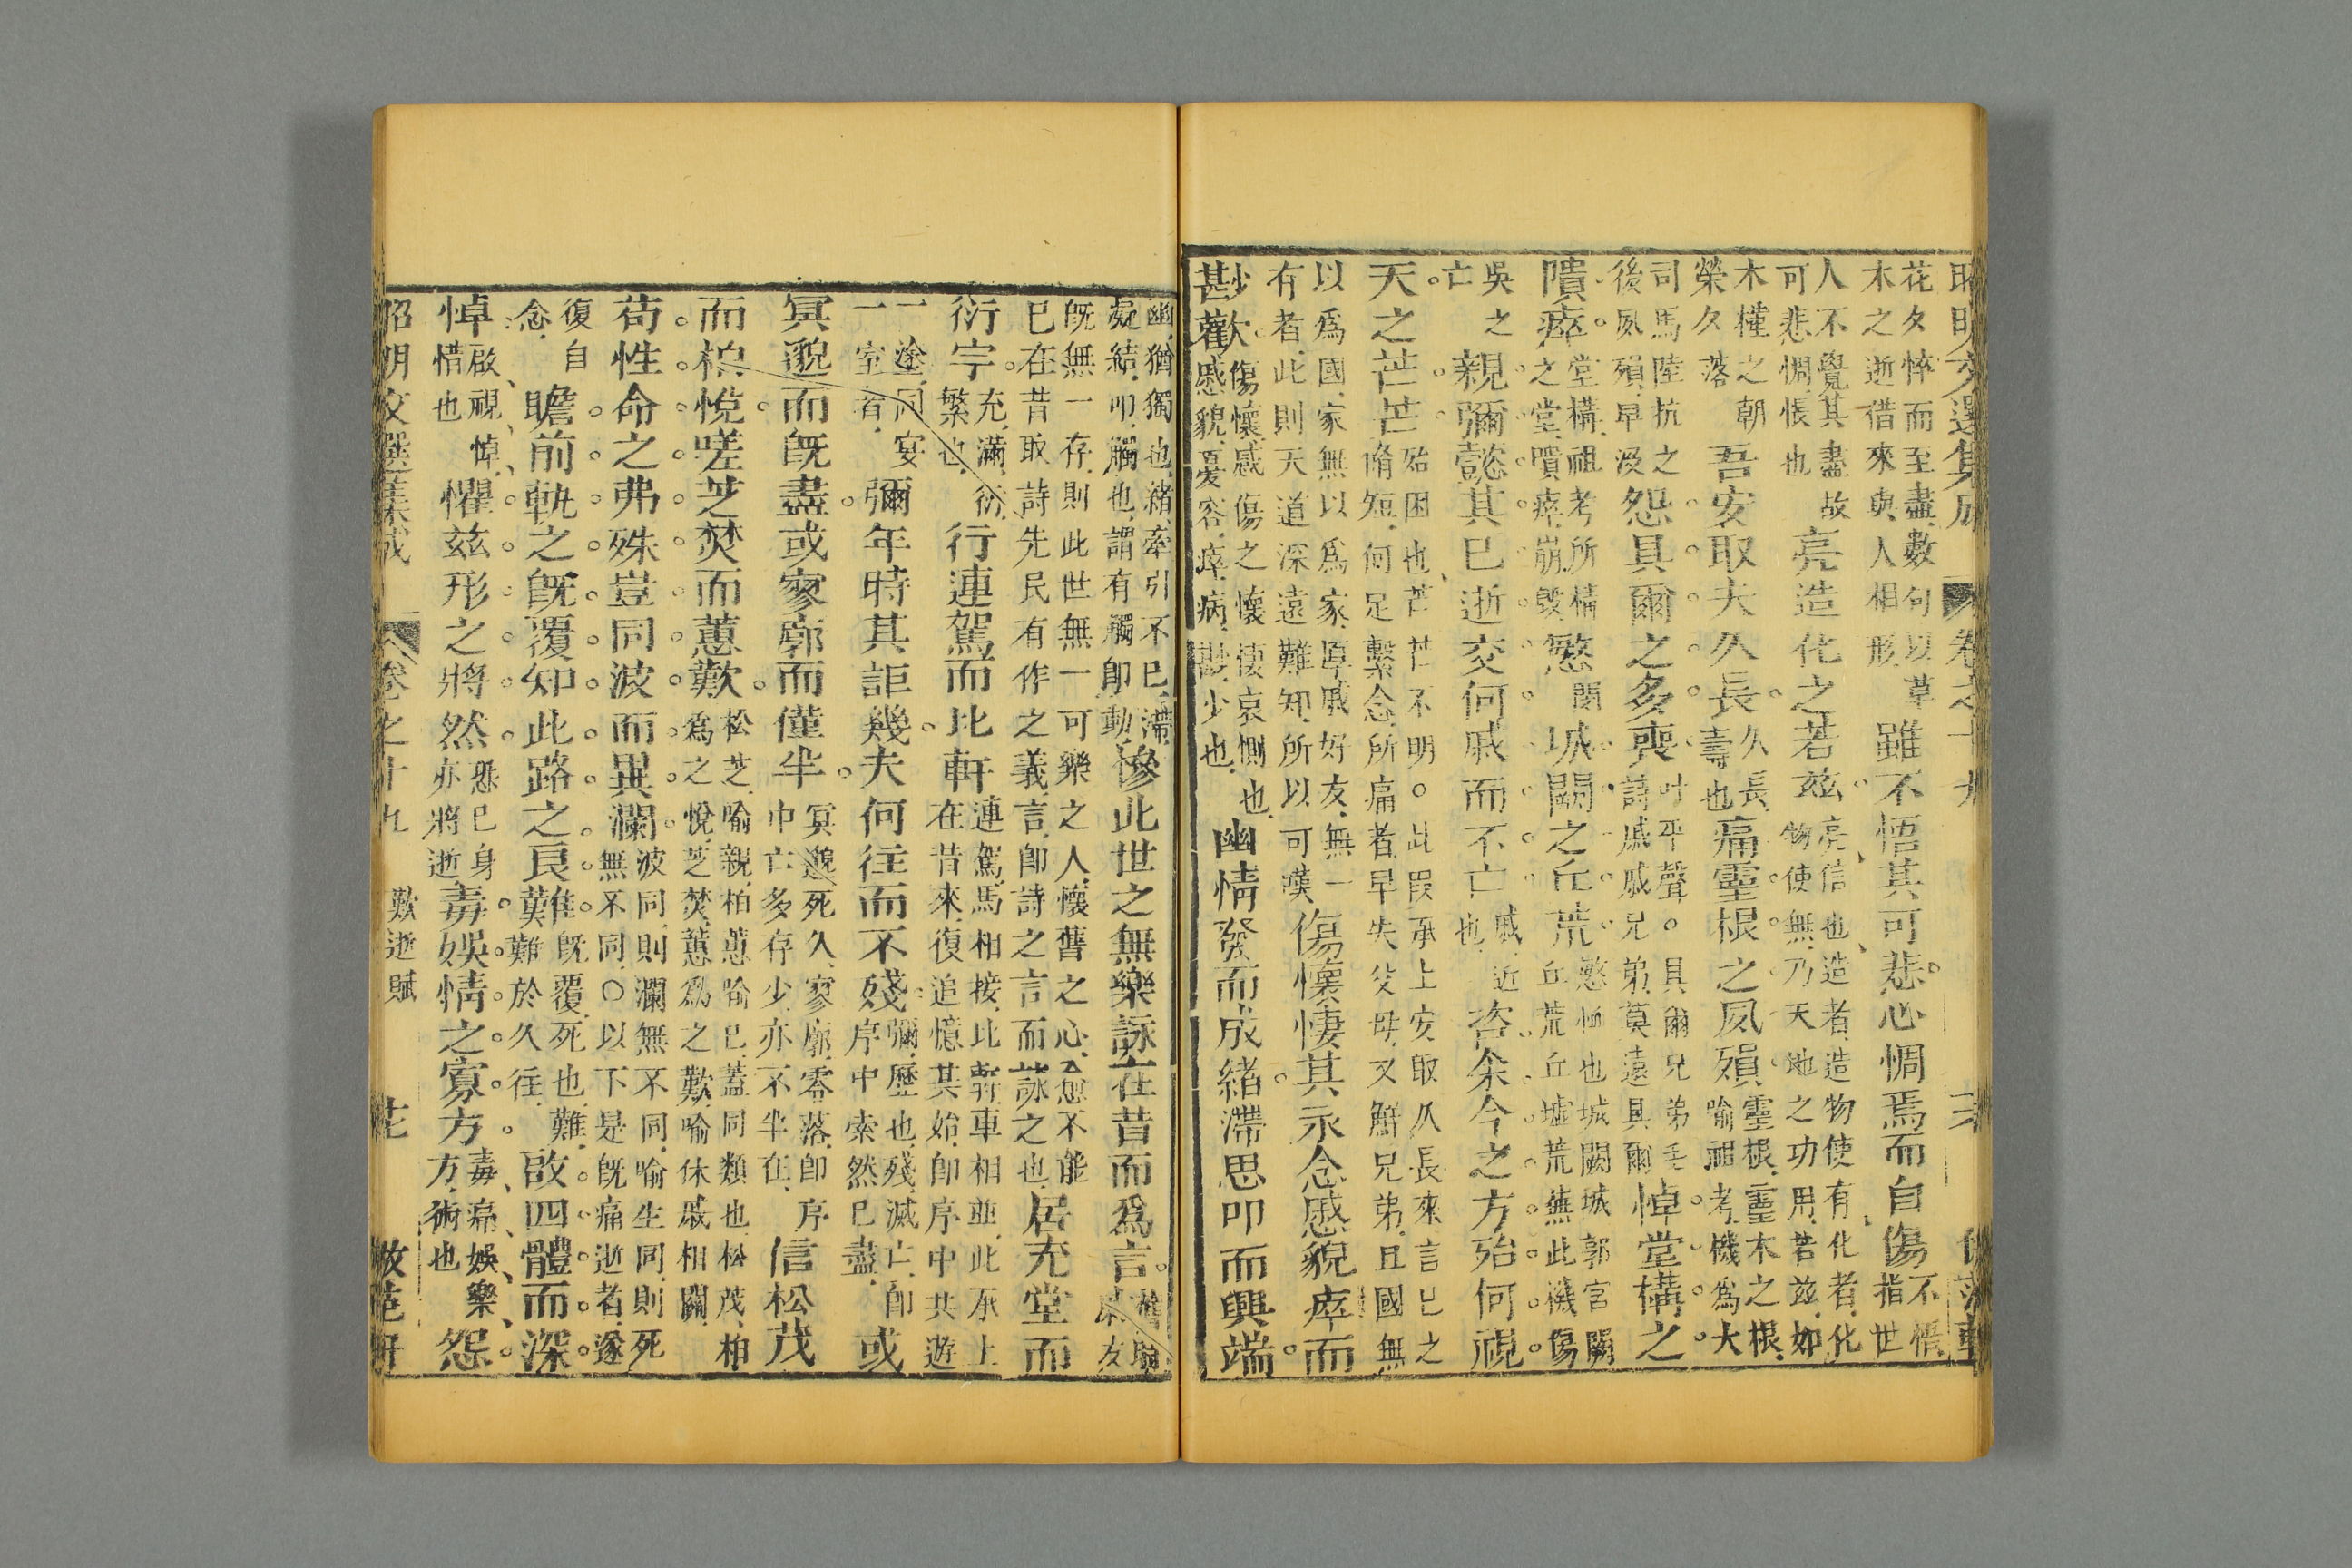 昭明文選集成 卷之十九
花夕悴而至盡數句以草
木之逝借來與人相形 雖不悟其可悲心惆焉而自傷 不悟指世
人不覺其盡故
可悲惆悵也 亮造化之若兹 亮信也造者造物使有化者化
物使無乃天地之功用若兹如
木槿之朝
榮夕落 吾安取夫久長 久長壽也 痛靈根之夙殞 靈根靈木之根
喻祖考機爲大
司馬陸抗之
後夙殞早没 怨具爾之多喪 叶平聲○具爾兄弟毛
詩戚戚兄弟莫遠具爾 悼堂構之
隤瘁 堂構祖考所構
之堂隤瘁崩毀 慜 閔 城闕之丘荒 慜恤也城闕城郭宮闕
丘荒丘墟荒蕪此機傷
吳之
亡 親彌懿其已逝交何戚而不亡 戚近也 咨余今之方殆何視
天之芒芒 殆困也芒芒不明○此段承上安取久長來言已之
脩短何足繫念所痛者早失父母又鮮兄弟且國無
以爲國家無以爲家厚戚好友無一
有者此則天道深遠難知所以可嘆 傷懷悽其永念慼貌瘁而
尠歡 傷懷慼傷之懷悽哀惻也
慼貌憂容瘁病尠少也 幽情發而成緒滯思叩而興端
幽猶獨也緒牽引不已滯
凝結叩觸也謂有觸即動 慘此世之無樂詠在昔而爲言
既無一存則此世無一可樂之人懷舊之心愈不能
已在昔取詩先民有作之義言即詩之言而詠之也 居充堂而
衍宇 充滿衍
繁也 行連駕而比軒 連駕馬相接比軒車相並此承上
在昔來復追憶其始即序中共遊
一塗同宴
一室者 彌年時其詎幾夫何往而不殘 彌歷也殘滅亡即
序中索然已盡 或
冥邈而既盡或寥廓而僅半 冥邈死久寥廓零落即序
中亡多存少亦不半在 信松茂
而柏悅嗟芝焚而蕙歎 松芝喻親柏蕙喻已蓋同類也松茂柏
爲之悅芝焚蕙爲之歎喻休戚相關
苟性命之弗殊豈同波而異瀾 波同則瀾無不同喻生同則死
無不同○以下是既痛逝者遂
復自
念 瞻前軌之既覆知此路之良難 既覆死也難
難於久往 啟四體而深
悼 啟視悼
惜也 懼兹形之將然 懸已身
亦將逝 毒娛情之寡方 毒痛娛樂
方術也 怨
昭明文選集成 卷之十九 歎逝賦